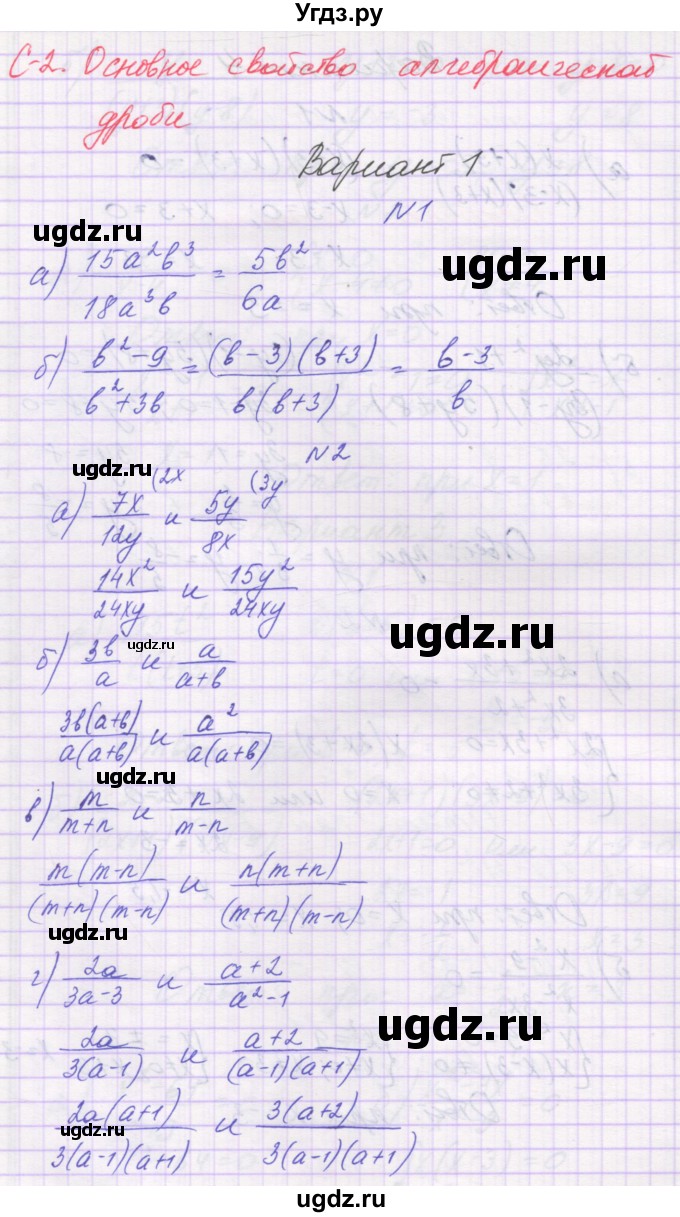 Угдз.ру
С-2. Основное свойство алгебраической
дроби
Вариант 1
N1
ugdz.ru
а) 15a²b³/18a³b = 5b²/6a
ugdz.ru
б) b²-9/b²+3b = (b-3)(b+3)/b(b+3) = b-3/b
ugdz.ru
N2
ugdz.ru
а) 7x/12y (2x и 5y/8x (3y
14x²/24xy и 15y²/24xy
ugdz.ru
ugdz.ru
б) 3b/a и a/a+b
3b(a+b)/a(a+b) и a²/a(a+b)
ugdz.ru
в) m/m+n и n/m-n
m(m-n)/(m+n)(m-n) и n(m+n)/(m+n)(m-n)
ugdz.ru
г) 2a/3a-3 и a+2/a²-1
ugdz.ru
2a/3(a-1) и a+2/(a-1)(a+1)
2a(a+1)/3(a-1)(a+1) и 3(a+2)/3(a-1)(a+1)
ugdz.ru
ugdz.ru